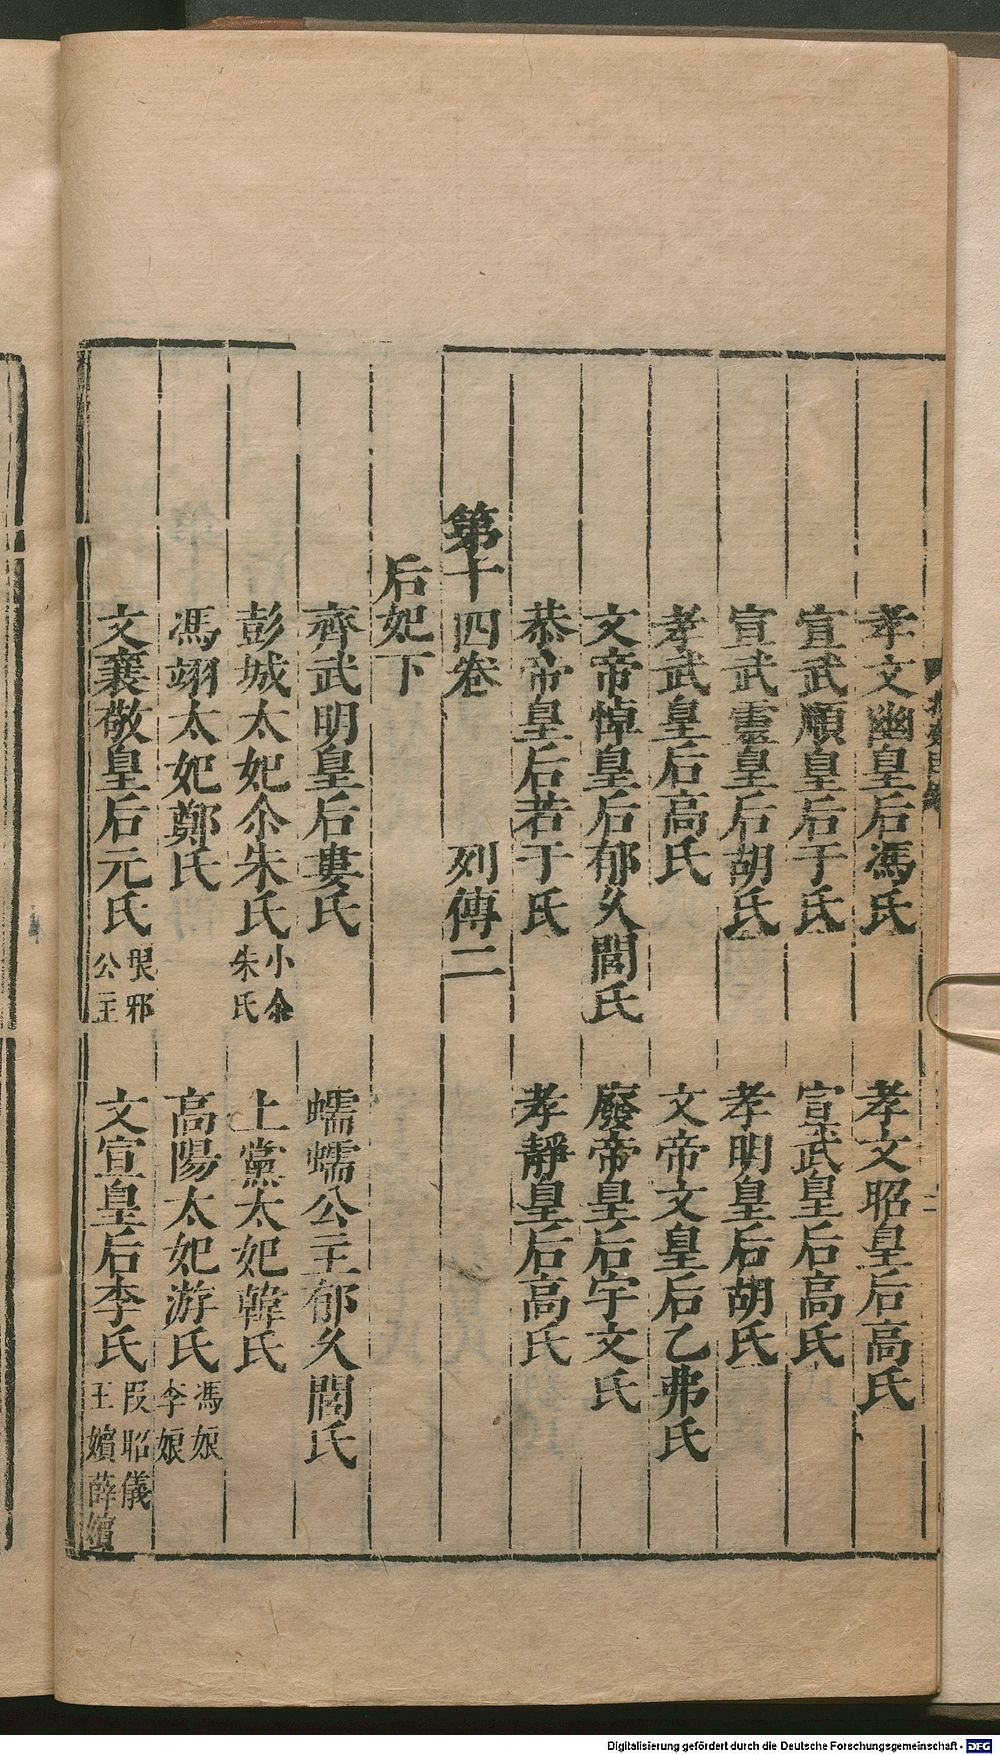 孝文幽皇后馮氏　孝文昭皇后高氏
宣武順皇后于氏　宣武皇后高氏
宣武靈皇后胡氏　孝明皇后胡氏
孝武皇后高氏　文帝文皇后乙弗氏
文帝悼皇后郁久閭氏　廢帝皇后宇文氏
恭帝皇后若干氏　孝靜皇后高氏
第十四卷　列傳二
后妃下
齊武明皇后婁氏　蠕蠕公主郁久閭氏
彭城太妃尒朱氏 小尒朱氏　上黨太妃韓氏
馮翊太妃鄭氏　高陽太妃游氏 馮娘 李娘
文襄敬皇后元氏 琅邪公主　文宣皇后李氏 段昭儀 王嬪 薛嬪
Digitalisierung gefördert durch die Deutsche Forschungsgemeinschaft - DFG